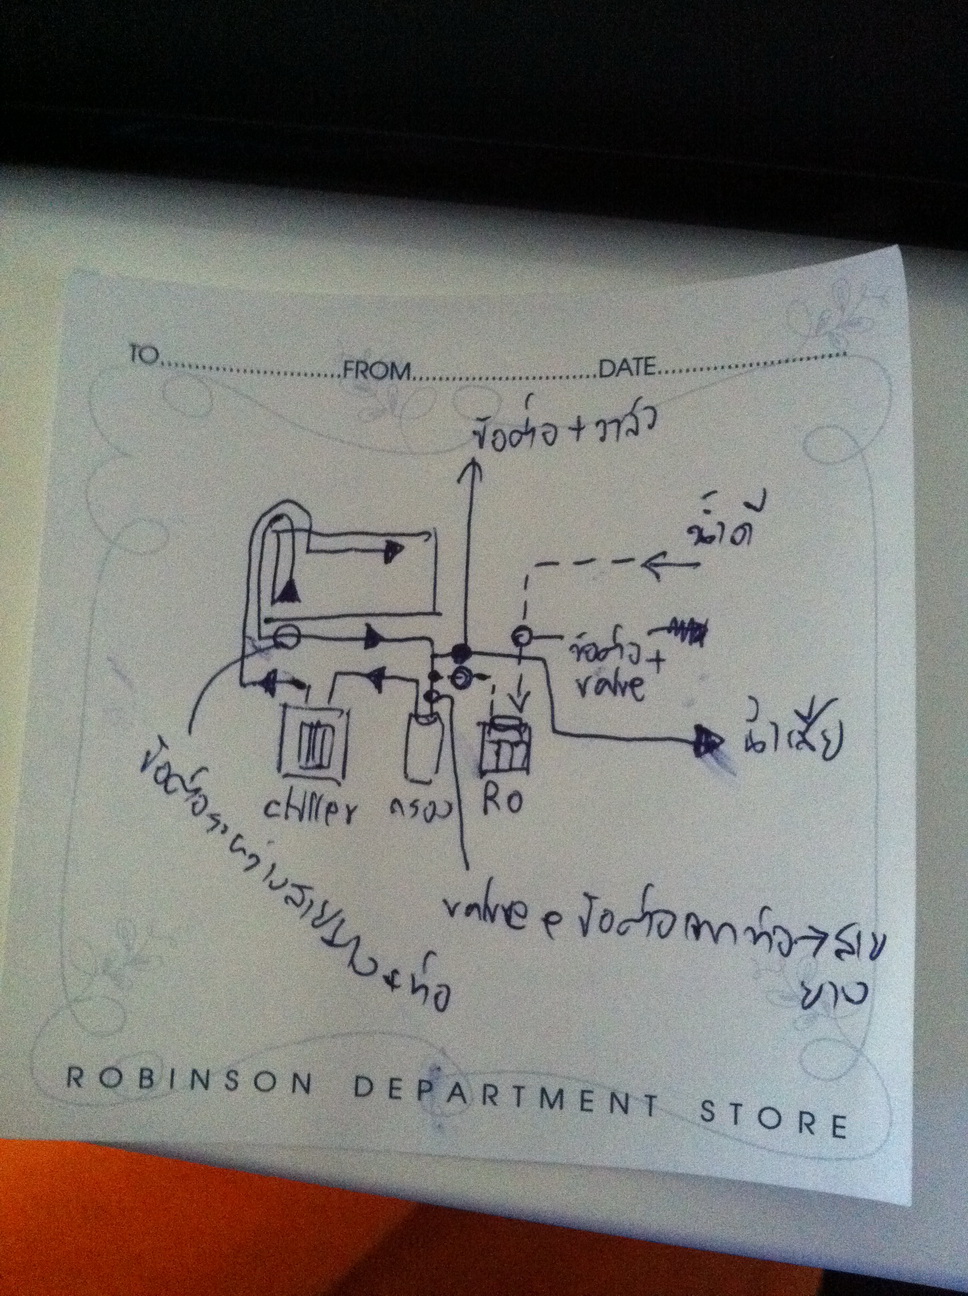 TO..............................FROM..............................DATE..............................
ข้อต่อ + วาล์ว
น้ำดี
ข้อต่อ +
valve
น้ำเสีย
chiller
กรอง
RO
ข้อต่อระหว่างสายยาง + ท่อ
valve e ข้อต่อจากท่อ → สาย
ยาง
ROBINSON DEPARTMENT STORE